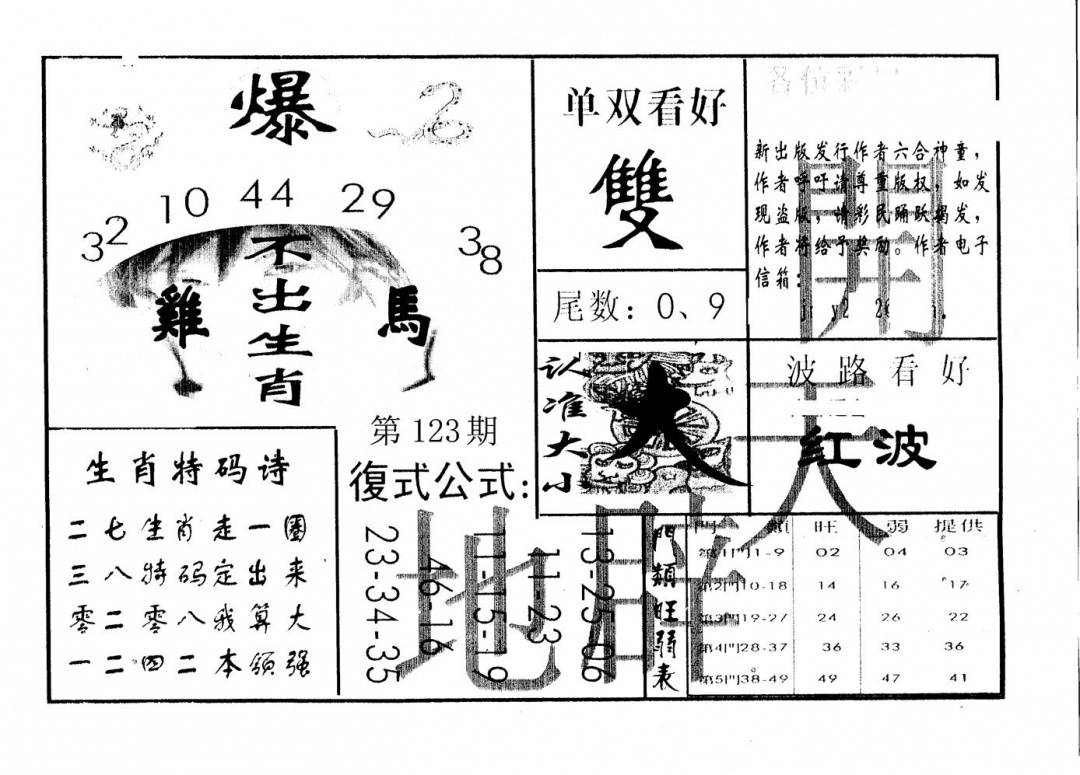 爆
32 10 44 29 38
不出生肖
雞 馬
第123期
单双看好
雙
尾数：0、9
新出版发行作者六合神童，
作者呼吁请尊重版权，如发
现盗版，请彩民踊跃揭发，
作者将给予奖励。作者电子
信箱：
认准大小
大
波路看好
紅波
生肖特码诗
二七生肖走一圈
三八特码定出来
零二零八我算大
一二四二本领强
復式公式：
13-25-06
11-23
11-15-19
46-16
23-34-35
門類旺弱表
門類 旺 弱 提供
第1门1-9 02 04 03
第2门10-18 14 16 17
第3门19-27 24 26 22
第4门28-37 36 33 36
第5门38-49 49 47 41